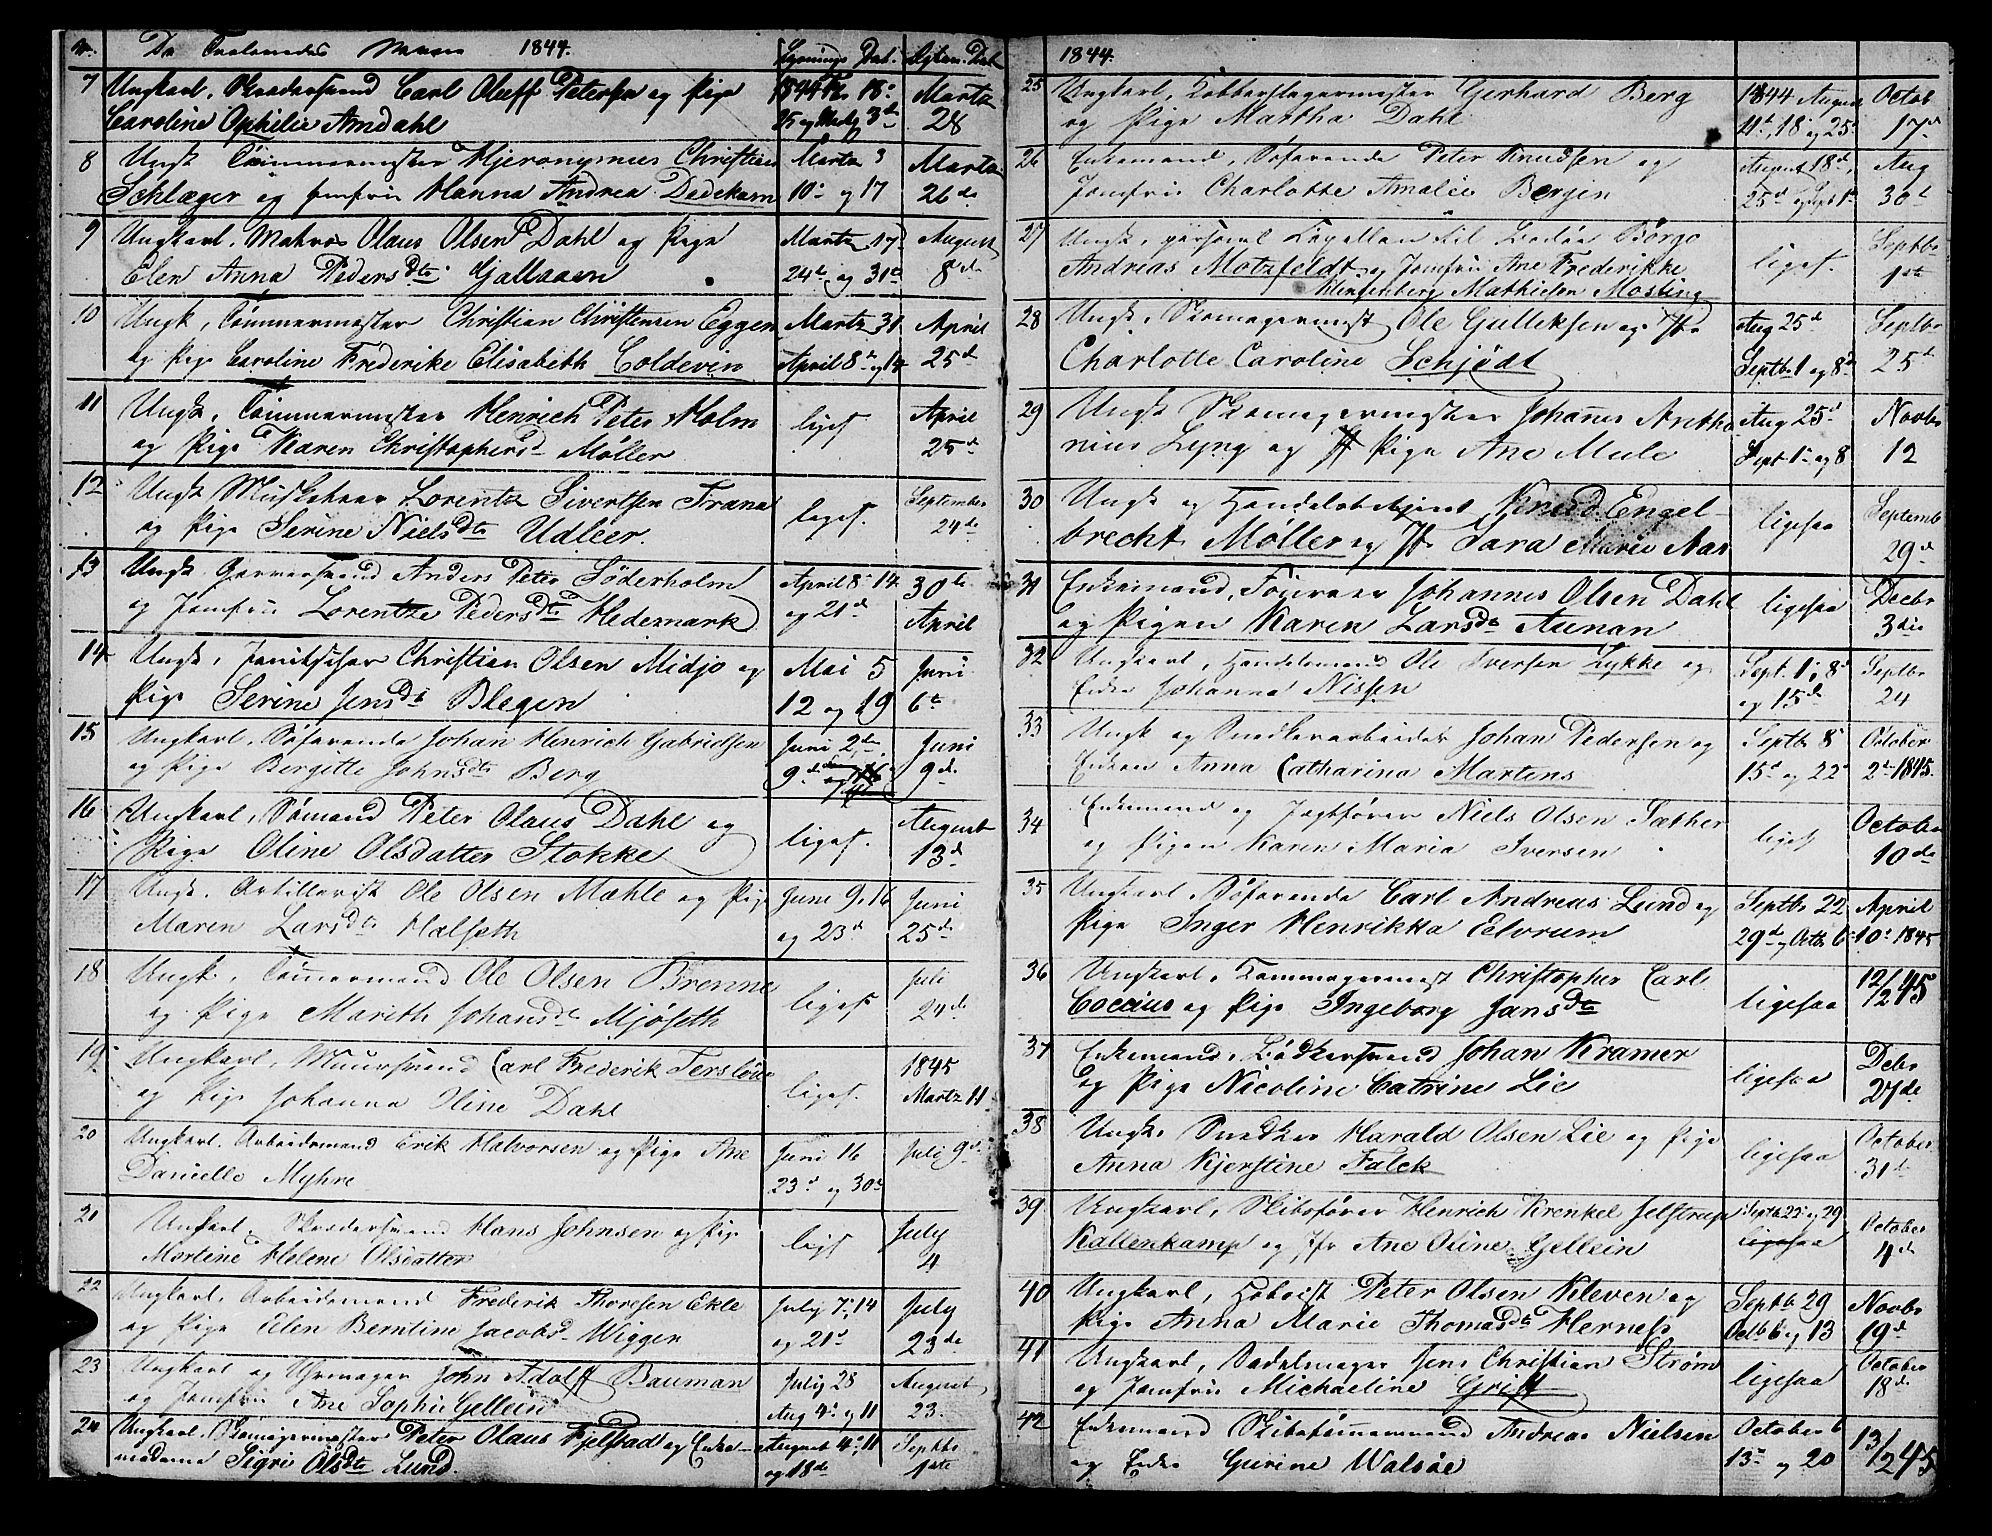 No. De Trolovedes Navne 1844. Lysnings Dat. Ægtev. Dat
7 Ungkarl, Skredersvend Carl Oluff Petersen og Pige 1844 Fb. 18de Martz
Caroline Ophelie Amdahl 25 og Martz 3de 28
8 Ungk Tømmermester Hjeronymus Christian Martz 3 Martz
Schlæger og Jomfru Hanna Andrea Dedekam 10de og 17 26de
9 Ungkarl, Matros Olaus Olsen Dahl og Pige Martz 17 August
Elen Anna Pedersdtr 24de og 31te 8de
10 Ungk, Tømmermester Christian Christensen Eggen Martz 31 April
og Pige Caroline Frederike Elisabeth Coldevin April 8de og 14 25de
11 Ungk, Tømmermester Henrich Peter Holm ligesf. April
og Pige Karen Christophersd Møller 25de
12 Ungk Muskateer Lorentz Sivertsen Trana ligesf. September
og Pige Serine Nielsdtr Udleer. 24de
13 Ungk. Garversvend Anders Peter Söderholm April 8de 14 30te
og Jomfru Lorentze Pedersdtr Hedemark og 21de April
14 Ungk, Christian Olsen Midjo og Mai 5 Juni
Pige Serine Jensdtr Blegen 12 og 19 6te
15 Ungkarl, Søfarende Johan Henrich Gabrielsen Juni 2de Juni
og Pige Bergitte Johnsdtr Berg 9de og 16 9de
16 Ungkarl, Sømand Peter Olaus Dahl og ligesf. August
Pige Oline Olsdatter Stokke 13de
17 Ungk. Artillerist Ole Olsen Mæhle og Pige Juni 9, 16 Juni
Maren Larsdtr Halseth og 23de 25de
18 Ungk, Tømmermand Ole Olsen Brenne ligesf Juli
og Pige Marith Johansdtr Mjøseth 24de
19 Ungkarl, Muursvend Carl Frederik Tersløse ligesf. 1845
og Pige Johanna Oline Dahl Martz 11
20 Ungkarl. Arbeidsmand Erik Halvorsen og Pige Ane Juni 16 Juli 9de
Danielle Myhre 23de og 30te
21 Ungkarl, Skredersvend Hans Johnsen og Pige ligsf July
Martine Helene Olsdatter 4
22 Ungkarl, Arbeidsmand Frederik Thoresen Ekle July 7, 14 July
og Pige Elen Berntine Jacobsd Wiggen og 21de 23de
23 Ungkarl og Uhrmager John Adolff Bauman July 28 August
og Jomfru Ane Sophie Gellein Aug 4de og 11 23.
24 Ungkarl, Skomagermester Peter Olaus Fjelstad og Enke- August 4de 11 Septbr
madame Sigri Olsdtr Lund. og 18de 1ste
1844.
25 Ungkarl, Kobberslagermester Gerhard Berg 1844 August Octob
og Pige Martha Dahl 11te, 18 og 25 17de
26 Enkemand, Søfarende Peter Knudsen og August 18de, Aug
Jomfru Charlotte Amalie Bergin 25de og Sept 1ste 30te
27 Ungk, personel Capellan til Børge ligesf. Septbr
Andreas Motzfeldt og Jomfru Ane Frederikke 1ste
Mathiesen Møsting
28 Ungk, Skomagermest Ole Gulliksen og Jfr Aug 25de Septbr
Charlotte Caroline Schjødt Septbr 1 og 8de 25de
29 Ungk Skomagermester Johanes Antho Aug 25de Novbr
nius Lyng og Pige Ane Mule Sept 1ste og 8 12
30 Ungk og Handelsbetjent Knud Engel- ligesaa Septemb
brecht Møller og Jfr Sara Marie Aas 29de
31 Enkemand, Johannes Olsen Dahl ligesaa Decbr
og Pigen Karen Larsdtr Aunan 3die
32 Ungkarl, Handelsmand Ole Iversen Lykke og Sept. 1, 8de Septbr
Enke Johanna Nissen og 15de 24
33 Ungk og Snedkerarbeider Johan Pedersen og Septbr 8 October
Enken Anna Catharina Martens 15de og 22de 2de 1845.
34 Enkemand og Jagtfører Niels Olsen Sæther ligesf October
og Pigen Karen Maria Iversen 10de
35 Ungkarl, Søfarende Carl Andreas Lund og Septbr 22 April
Pige Inger Henrikka Elvrum 29de og Octb 6te 10de 1845
36 Ungkarl, Kammagermest Christopher Carl ligesaa 12/2 45
Coccius og Pige Ingeborg Jansdtr
37 Enkemand, Bødkersvend Johan Kramer ligesaa Debr
og Pige Nicoline Catrine Lie 27de
38 Ungk. Snedker Harald Olsen Lie og Pige ligesaa October
Anna Kjerstine Falck 31te
39 Ungkarl, Skibsfører Henrich Krenkel Jelstrup Septb 22de og 29 October
Kaltenkamp og Jfr Ane Oline Gellein ligesaa 4de
40 Ungkarl, Hoboist Peter Olsen Kleven og Septbr 29 Novbr
Pige Anna Marie Thomasdtr Herness Octb 6 og 13 19de
41 Ungkarl, Sadelmager Jens Christian Strøm ligesaa October
og Jomfru Michaeline Grip 18de
42 Enkemand Skibstømmermand Andreas Nielsen October 6 13/2 45
og Enke Gurine Walsøe 13de og 20